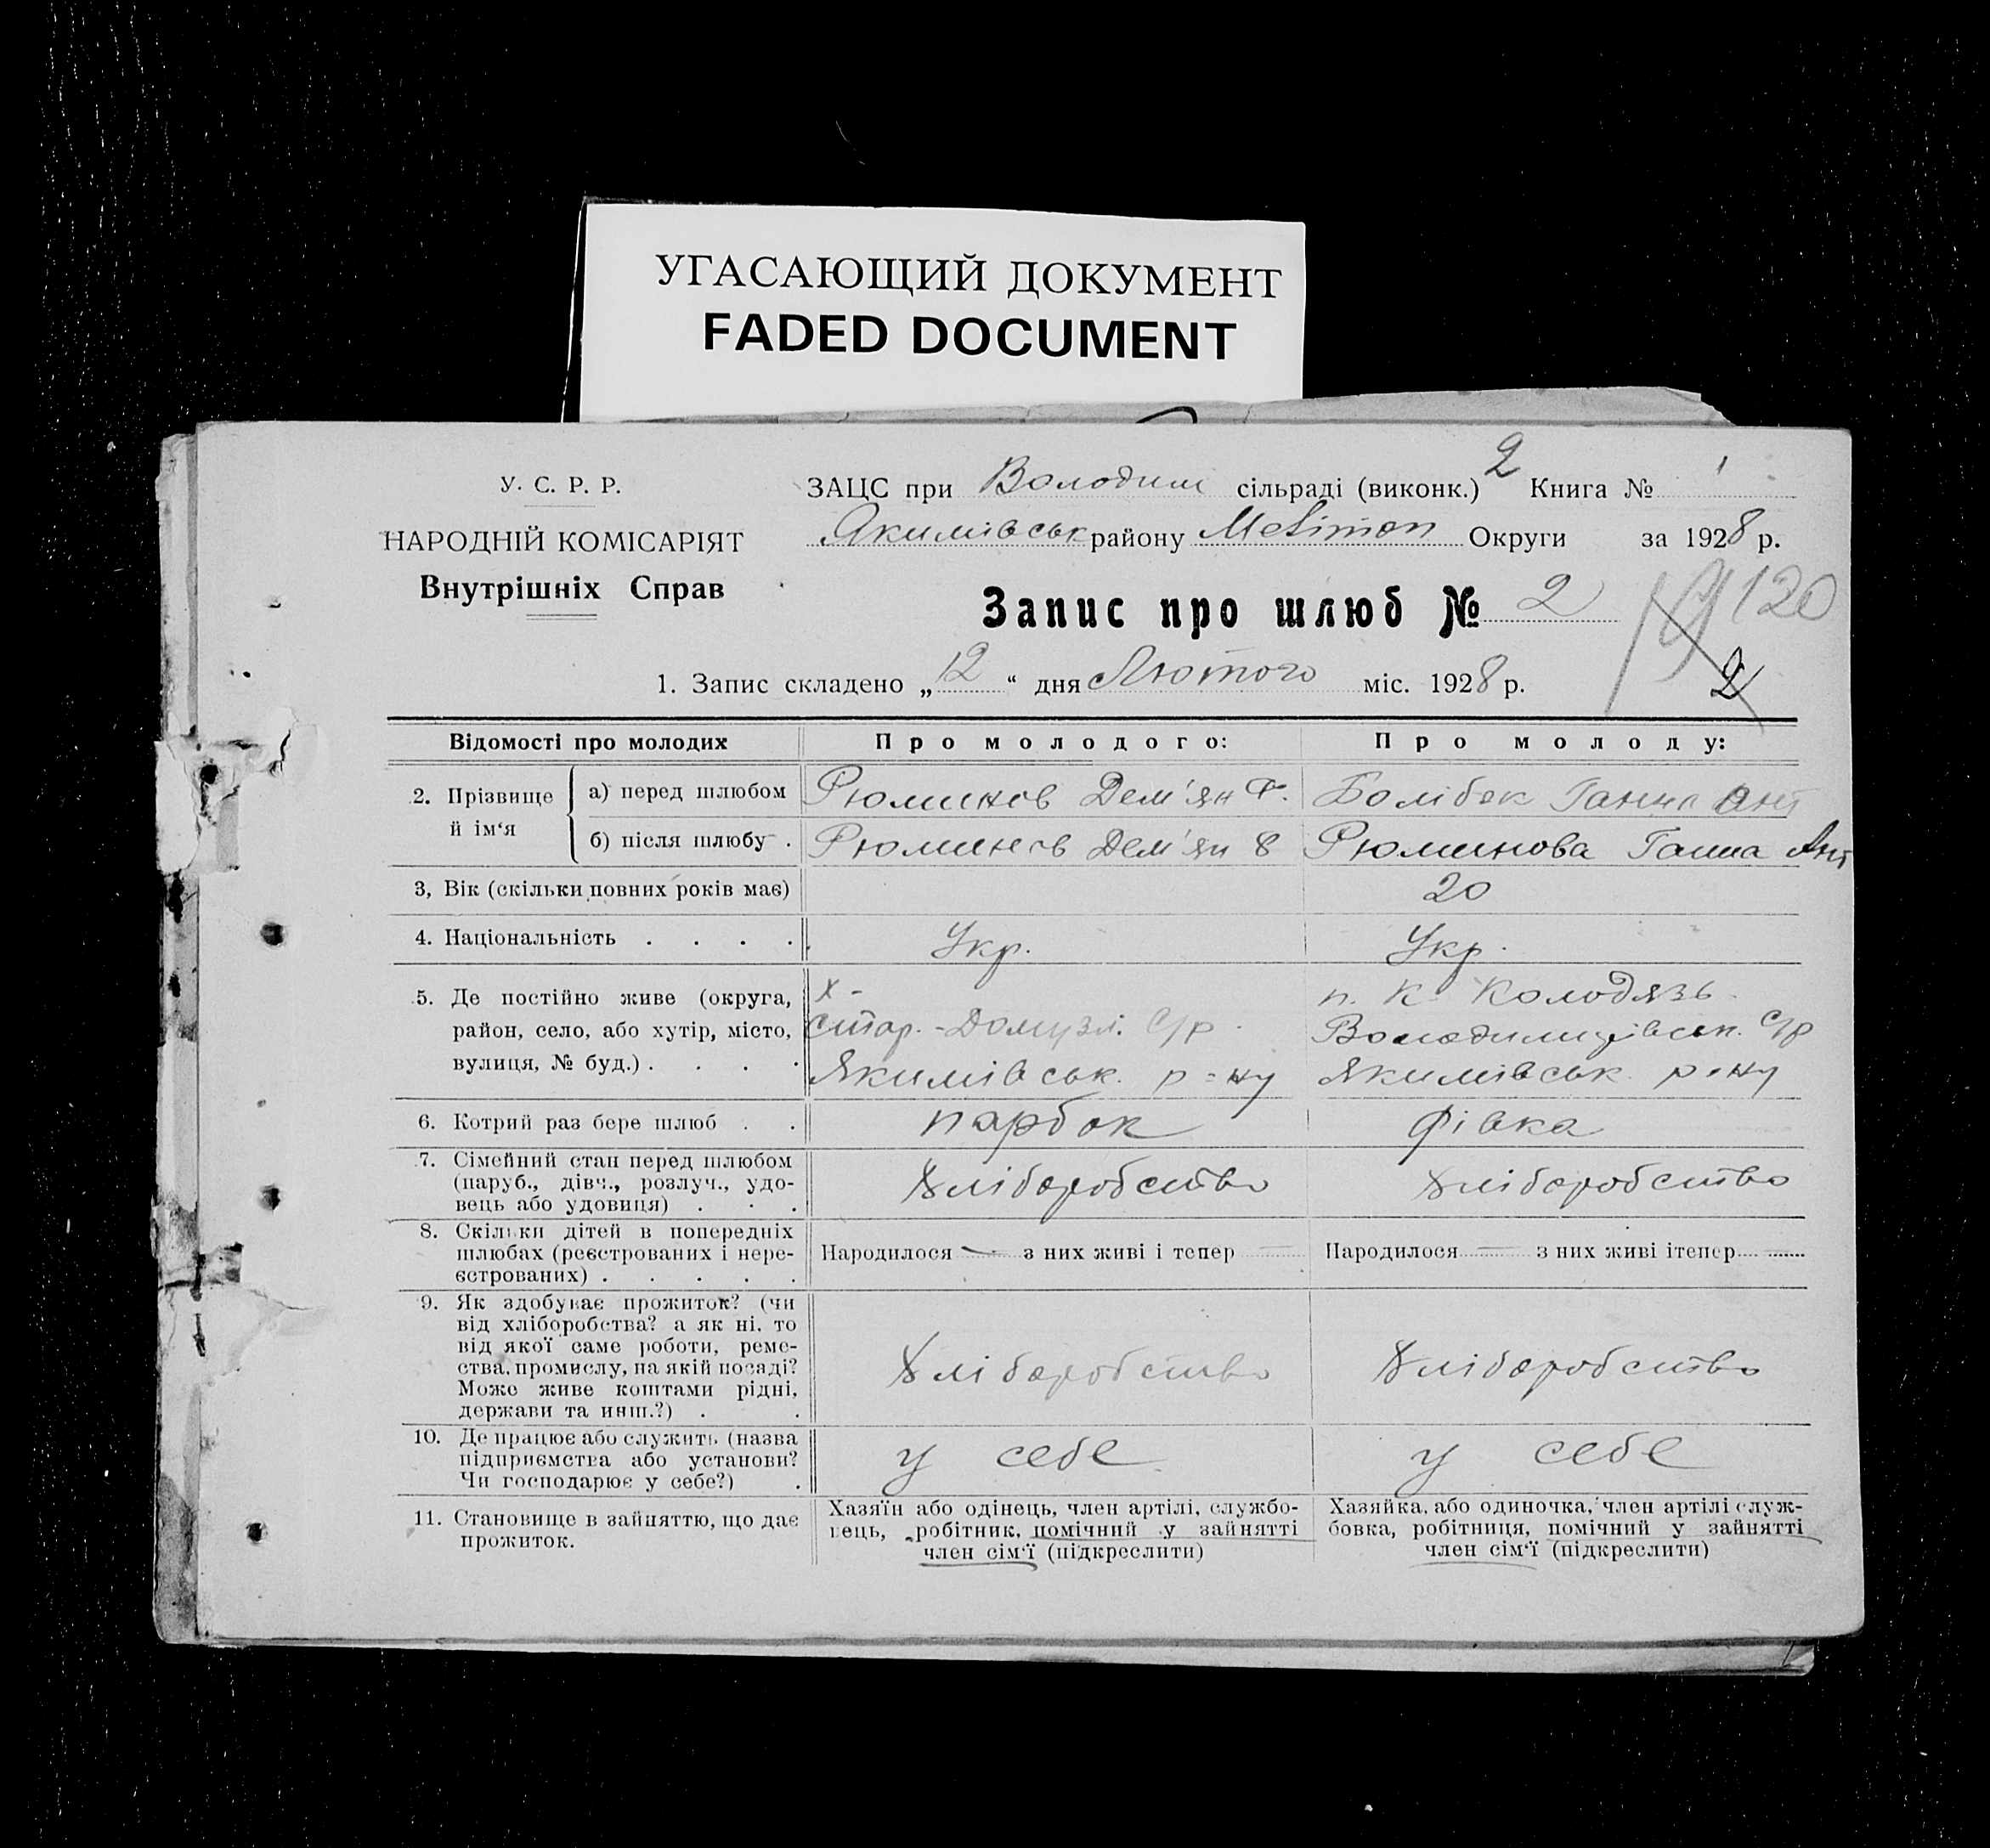 УГАСАЮЩИЙ ДОКУМЕНТ
FADED DOCUMENT
У. С. Р. Р.
НАРОДНІЙ КОМІСАРІЯТ
Внутрішніх Справ
ЗАЦС при Володим сільраді (виконк.) 2 Книга № 1
Якимівськ району Меліт Округи за 1928 р.
Запис про шлюб № 2
120
2
1. Запис складено „12“ дня Лютого міс. 1928 р.
Відомості про молодих Про молодого: Про молоду:
2. Прізвище й ім‘я
а) перед шлюбом Рюминов Дем'ян Ф. Болібок Ганна Ант
б) після шлюбу Рюминов Дем'ян Рюминова Ганна Ант
3, Вік (скільки повних років має) 20
4. Національність . . . . Укр. Укр.
5. Де постійно живе (округа, х- п. К. Колодязь
район, село, або хутір, місто, Стар.-Домузл. С/р. С/р
вулиця, № буд.) . . . . Якимівськ. р-ну Якимівськ. р-ну
6. Котрий раз бере шлюб . . парбок дівка
7. Сімейний стан перед шлюбом
(паруб., дівч., розлуч., удо-
вець або удовиця) . . . Хліборобство Хліборобство
8. Скільки дітей в попередніх
шлюбах (реєстрованих і нере-
єстрованих) . . . . . Народилося — з них живі і тепер — Народилося — з них живі ітепер
9. Як здобуває прожиток? (чи
від хліборобства? а як ні. то
від якої саме роботи, реме-
ства, промислу, на якій посаді?
Може живе коштами рідні,
держави та инш.?) . . Хліборобство Хліборобство
10. Де працює або служить (назва
підприємства або установи?
Чи господарює у себе?) . у себе у себе
11. Становище в зайняттю, що дає
прожиток.
Хазяїн або одінець, член артілі, службо-
вець, робітник, помічний у зайнятті
член сім‘ї (підкреслити)
Хазяйка, або одиночка, член артілі служ-
бовка, робітниця, помічний у зайнятті
член сім‘ї (підкреслити)